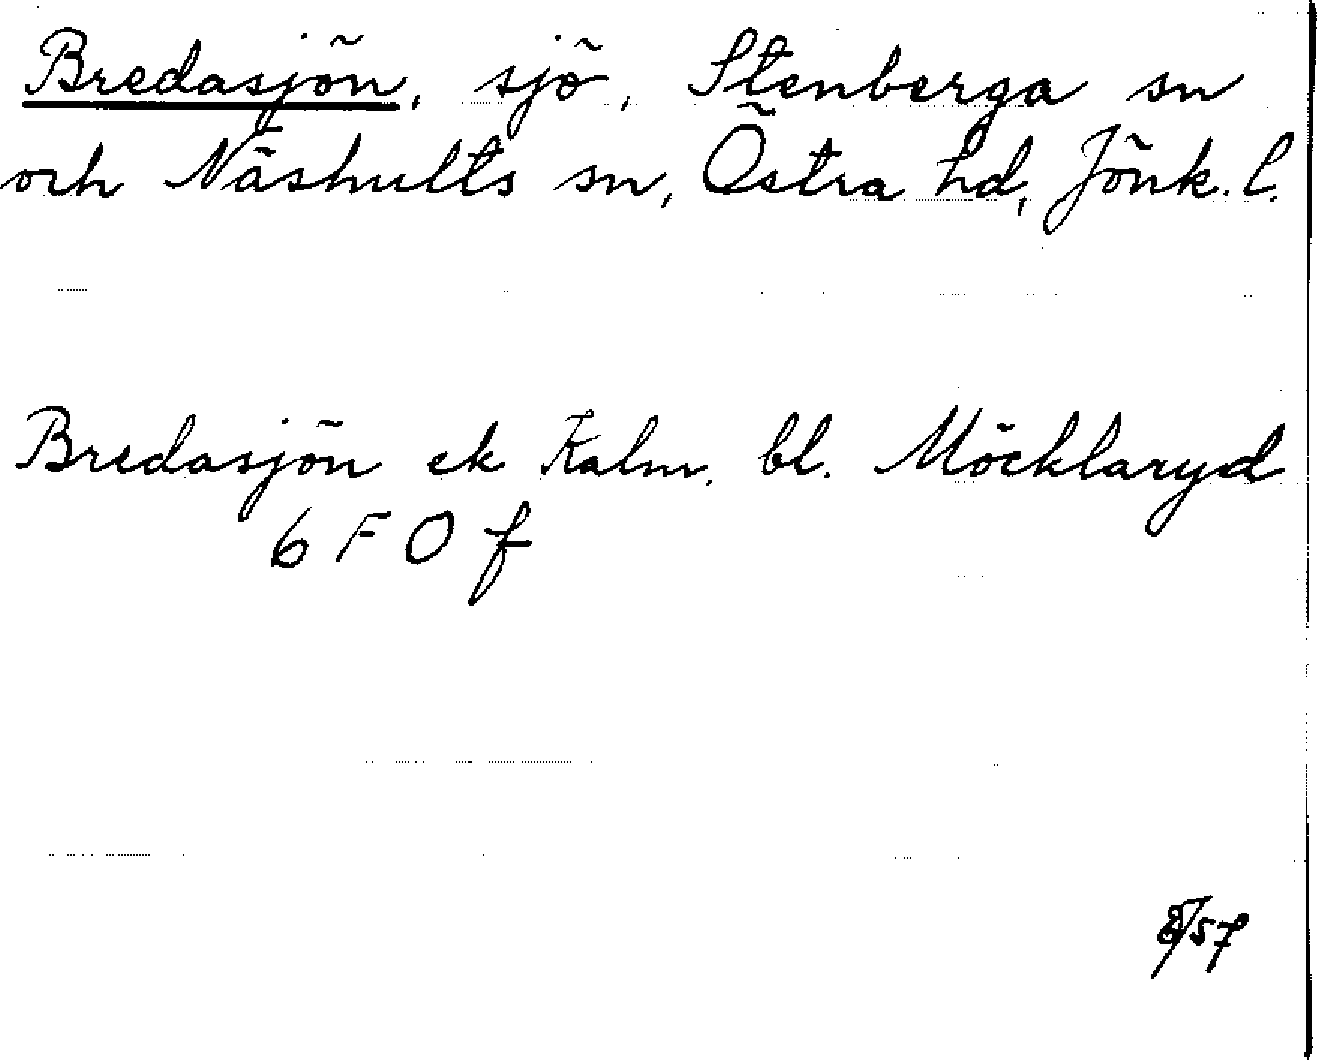 Bredasjön, sjö, Stenberga sn
och Näshults sn, Östra hd, Jönk. l.
Bredasjön ek Kalm. bl. Möcklaryd
6 F O f